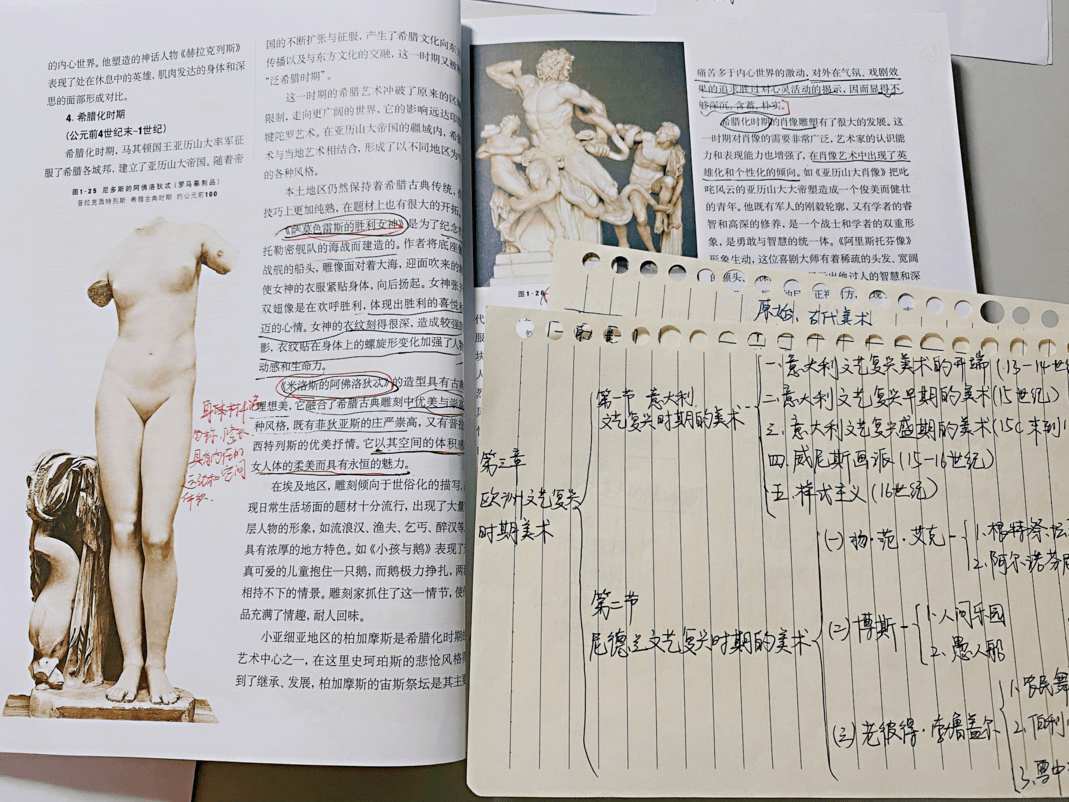 的内心世界。他塑造的神话人物《赫拉克列斯》
表现了处在休息中的英雄，肌肉发达的身体和深
思的面部形成对比。
4. 希腊化时期
（公元前4世纪末~1世纪）
希腊化时期，马其顿国王亚历山大率军征
服了希腊各城邦，建立了亚历山大帝国。随着帝
图1-25 尼多斯的阿佛洛狄忒（罗马摹制品）
普拉克西特列斯 希腊古典时期 约公元前100
身体
匀称、修长
具有内在的
运动和空间
国的不断扩张与征服，产生了希腊文化向东
传播以及与东方文化的交融，这一时期又被称
“泛希腊时期”。
这一时期的希腊艺术冲破了原来的区
限制，走向更广阔的世界，它的影响远达印
犍陀罗艺术。在亚历山大帝国的疆域内，希
术与当地艺术相结合，形成了以不同地区为
的各种风格。
本土地区仍然保持着希腊古典传统，
技巧上更加纯熟，在题材上也有很大的开拓。
《萨莫色雷斯的胜利女神》是为了纪念
托勒密舰队的海战而建造的。作者将底座
战舰的船头，雕像面对着大海，迎面吹来的
使女神的衣服紧贴身体，向后扬起。女神张
双翅像是在欢呼胜利，体现出胜利的喜悦
迈的心情。女神的衣纹刻得很深，造成较强
影，衣纹贴在身体上的螺旋形变化加强了人
动感和生命力。
《米洛斯的阿佛洛狄忒》的造型具有古
理想美，它融合了希腊古典雕刻中优美与崇
种风格，既有菲狄亚斯的庄严崇高，又有普拉
西特列斯的优美抒情。它以其空间的体积感
女人体的柔美而具有永恒的魅力。
在埃及地区，雕刻倾向于世俗化的描写，
现日常生活场面的题材十分流行，出现了大量
层人物的形象，如流浪汉、渔夫、乞丐、醉汉等
具有浓厚的地方特色。如《小孩与鹅》表现了
真可爱的儿童抱住一只鹅，而鹅极力挣扎，两
相持不下的情景。雕刻家抓住了这一情节，使
品充满了情趣，耐人回味。
小亚细亚地区的柏加摩斯是希腊化时期
艺术中心之一，在这里史珂珀斯的悲怆风格
到了继承、发展，柏加摩斯的宙斯祭坛是其主
图1-26
痛苦多于内心世界的激动，对外在气氛、戏剧效
果的追求胜过对心灵活动的揭示，因而显得不
够深沉、含蓄、朴实。
希腊化时期的肖像雕塑有了很大的发展。这
一时期对肖像的需要非常广泛，艺术家的认识能
力和表现能力也增强了，在肖像艺术中出现了英
雄化和个性化的倾向。如《亚历山大肖像》把叱
咤风云的亚历山大大帝塑造成一个俊美而健壮
的青年。他既有军人的刚毅轮廓，又有学者的
睿智和高深的修养，是一个战士和学者的双重形
象，是勇敢与智慧的统一体。《阿里斯托芬像》
形象生动，这位喜剧大师有着稀疏的头发、宽阔
的额头，
出他过人的智慧和深
原始、古代美术
第三章
欧洲文艺复兴
时期美术
第一节 意大利
文艺复兴时期的美术
一.意大利文艺复兴美术的开端(13-14世纪
二.意大利文艺复兴早期的美术(15世纪)
三.意大利文艺复兴盛期的美术(15C末到1
四.威尼斯画派(15-16世纪)
五.样式主义(16世纪)
第二节
尼德兰文艺复兴时期的美术
(一)杨·范·艾克
1.根特祭坛
2.阿尔诺芬
(二)博斯
1.人间乐园
2.愚人船
(三)老彼得·勃鲁盖尔
1.农民舞
2.
3.雪中